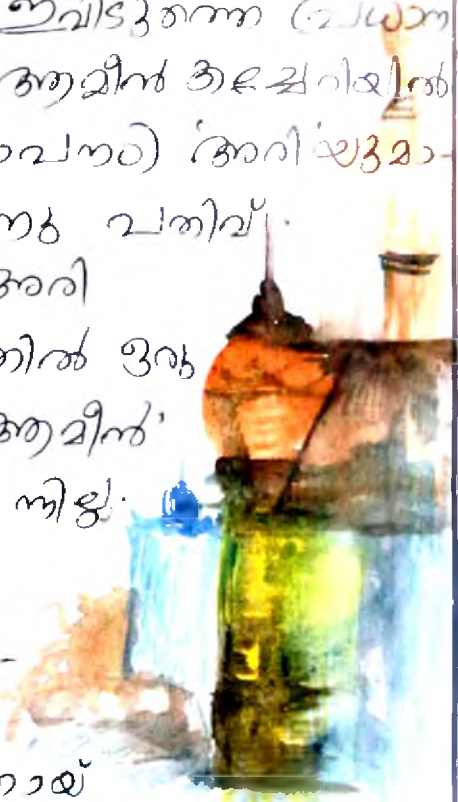 ഇവിടുത്തെ പ്രധാന
ആമീൻ കച്ചേരിയിൽ
ാവനം) 'അരി'യുമാ-
ന്നു പതിവ്.
അരി
ത്തിൽ ഒരു
ആമീൻ'
ന്നില്ല.
നായ്